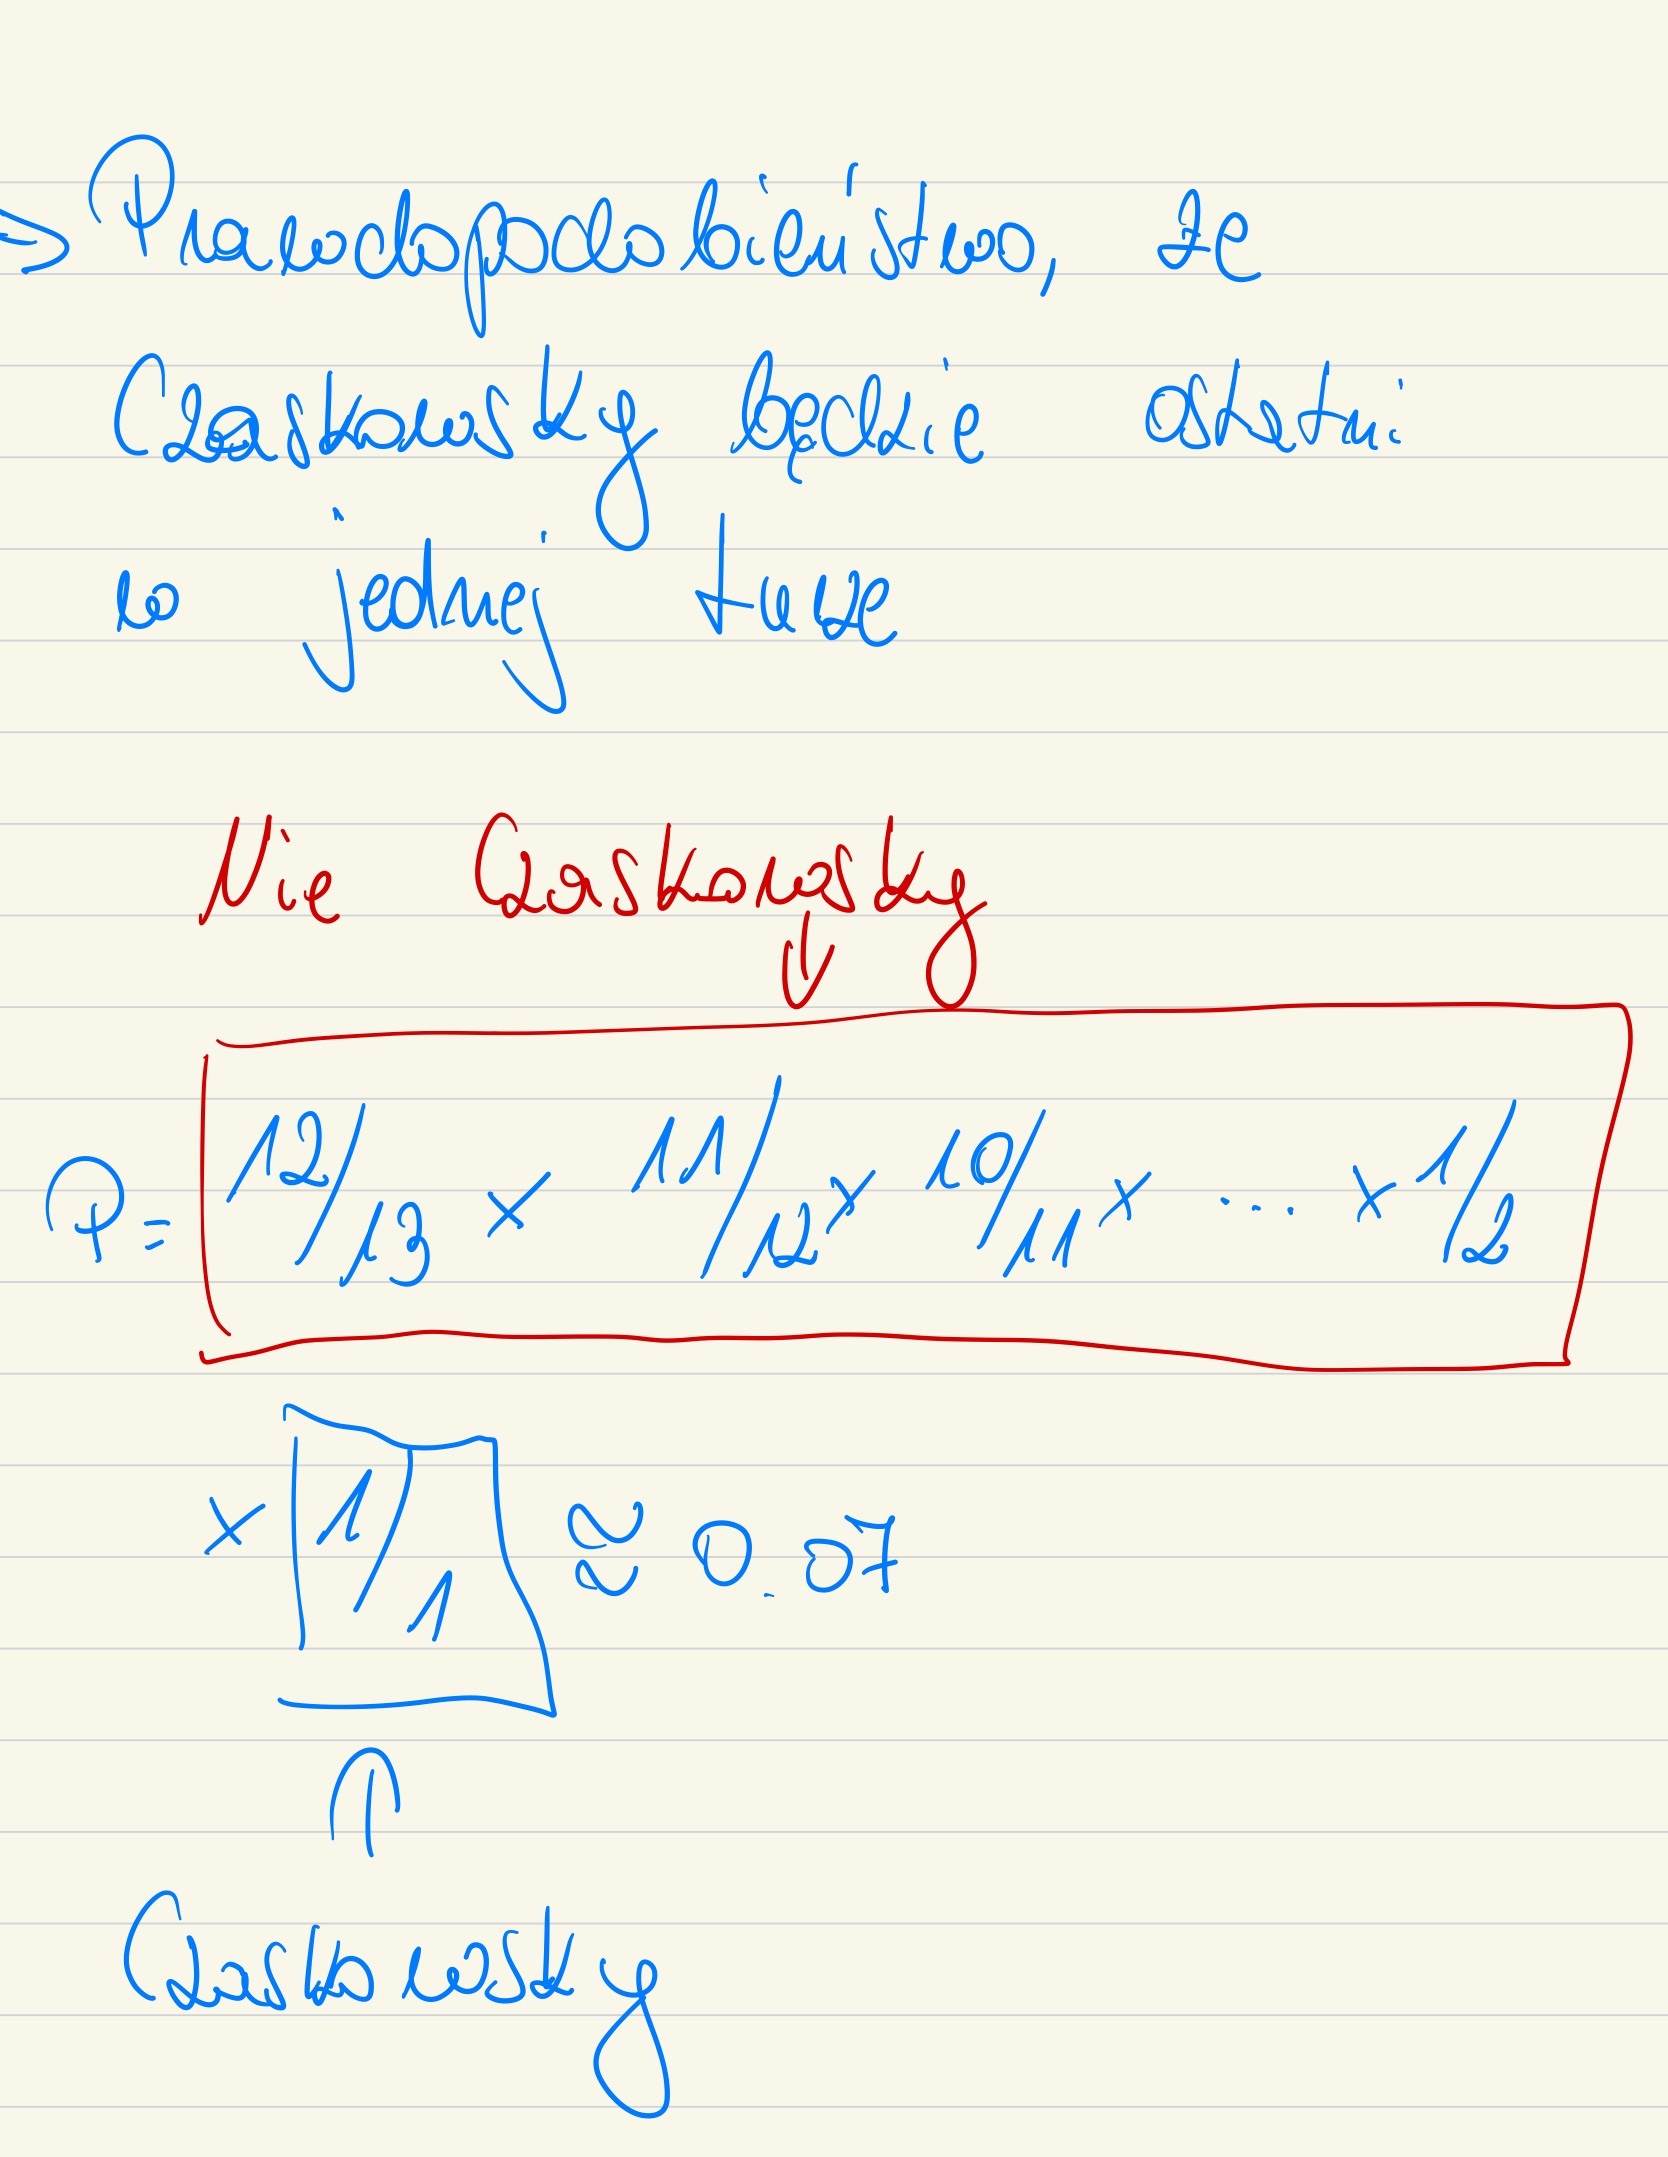 => Prawdopodobieństwo, że
Czaskowsky będzie ostatni
w jednej turze
Nie Czaskowsky
P = 12/13 x 11/12 x 10/11 x ... x 1/2
x 1/1 ≈ 0.07
Czaskowsky